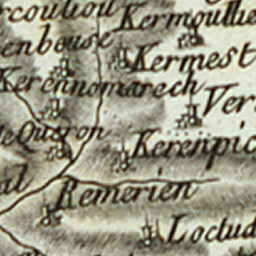 rcouliou
Kermoullie
enbouse
Kermest
Kerennomarech
Ver
le Queron
Kerenpic
al
Remerien
Loctud